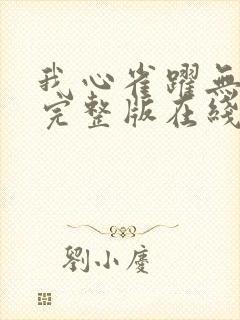 我心雀躍無
完整版在綫
劉小慶